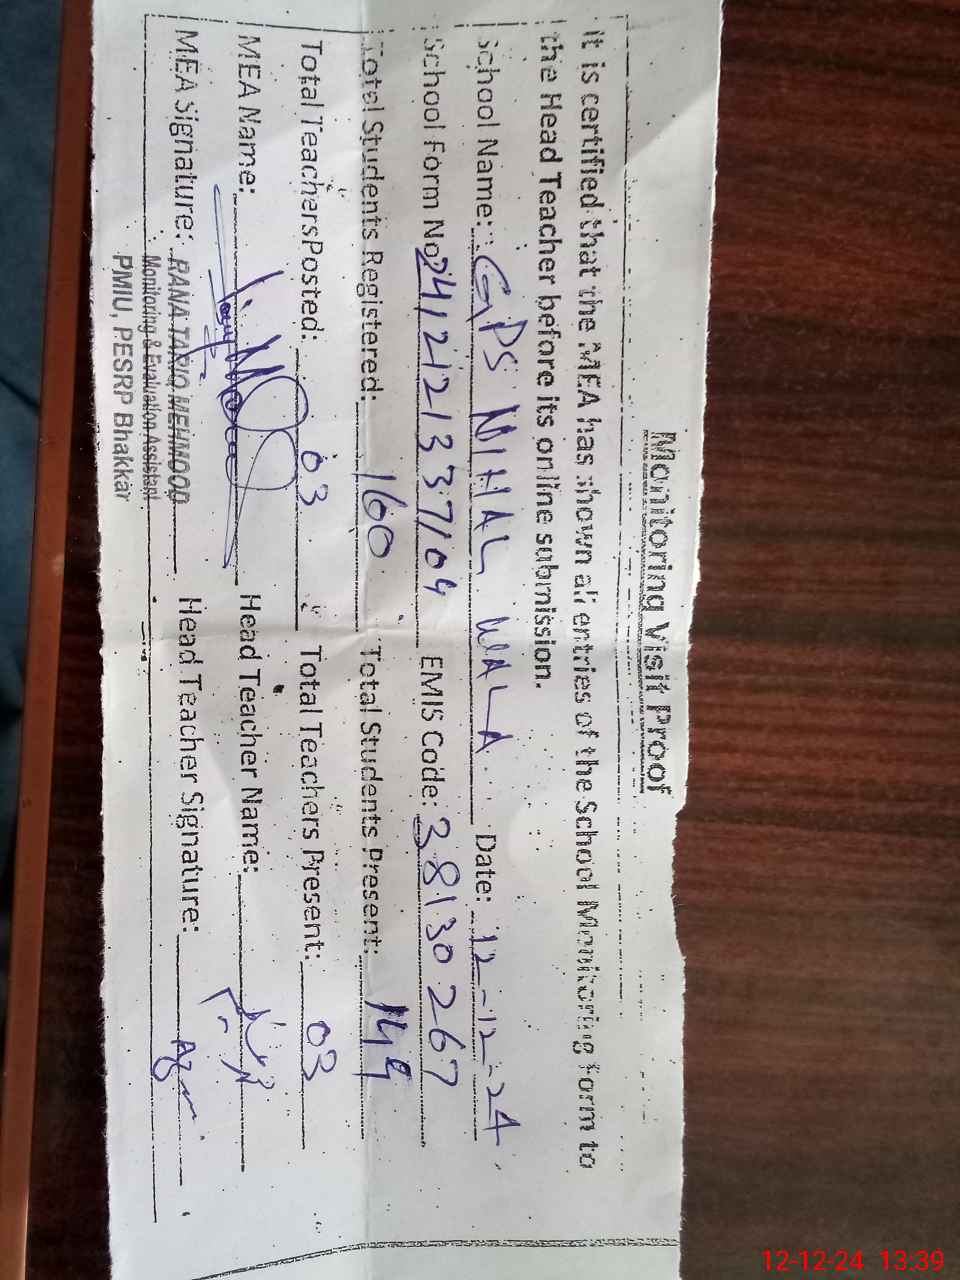 Monitoring Visit Proof
It is certified that the MEA has shown all entries of the School Monitoring form to
the Head Teacher before its online submission.
School Name: GPS NIHAL WALA Date: 12-12-24
School Form No 2412121337104 EMIS Code: 38130267
Total Students Registered: 160 Total Students Present: 144
Total TeachersPosted: 03 Total Teachers Present: 03
MEA Name: Head Teacher Name:
MEA Signature: RANA TARIQ MEHMOOD Head Teacher Signature:
Monitoring & Evaluation Assistant
PMIU, PESRP Bhakkar
12-12-24 13:39